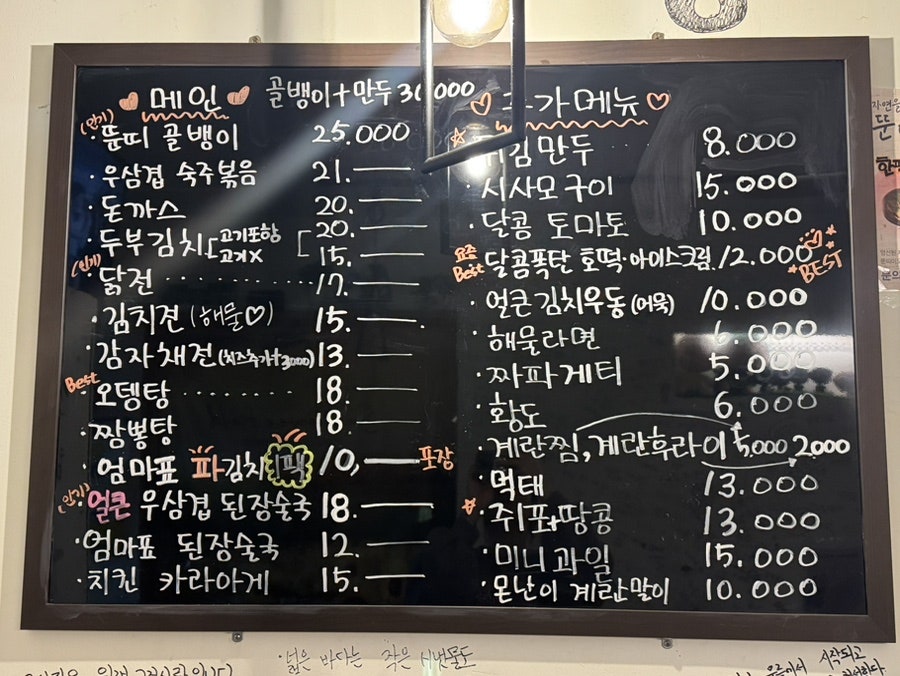 메인 골뱅이+만두 30,000
(인기)
· 뚠띠 골뱅이 25.000
· 우삼겹 숙주볶음 21. ―
· 돈까스 20. ―
· 두부김치 [고기포함 [ 20. ―
고기X 15. ―
(인기)
· 닭전 ········ 17. ―
· 김치전 (해물♡) 15. ―
· 감자채전 (치즈추가+3000) 13. ―
Best
· 오뎅탕 ········ 18. ―
· 짬뽕탕 18. ―
· 엄마표 파김치 1팩 10, ― 포장
(인기)
· 얼큰 우삼겹 된장술국 18. ―
· 엄마표 된장술국 12. ―
· 치킨 카라아게 15. ―
♡ 추가메뉴 ♡
튀김만두 8.000
· 시사모구이 15.000
· 달콤 토마토 10.000
요즘 Best
· 달콤폭탄 호떡·아이스크림 12.000 BEST
· 얼큰김치우동 (어묵) 10.000
· 해물라면 6.000
· 짜파게티 5.000
· 황도 6.000
· 계란찜, 계란후라이 5,000 2,000
· 먹태 13.000
· 쥐포+땅콩 13.000
· 미니과일 15.000
· 못난이 계란말이 10.000
넓은 바다는 작은 시냇물도
시작되고